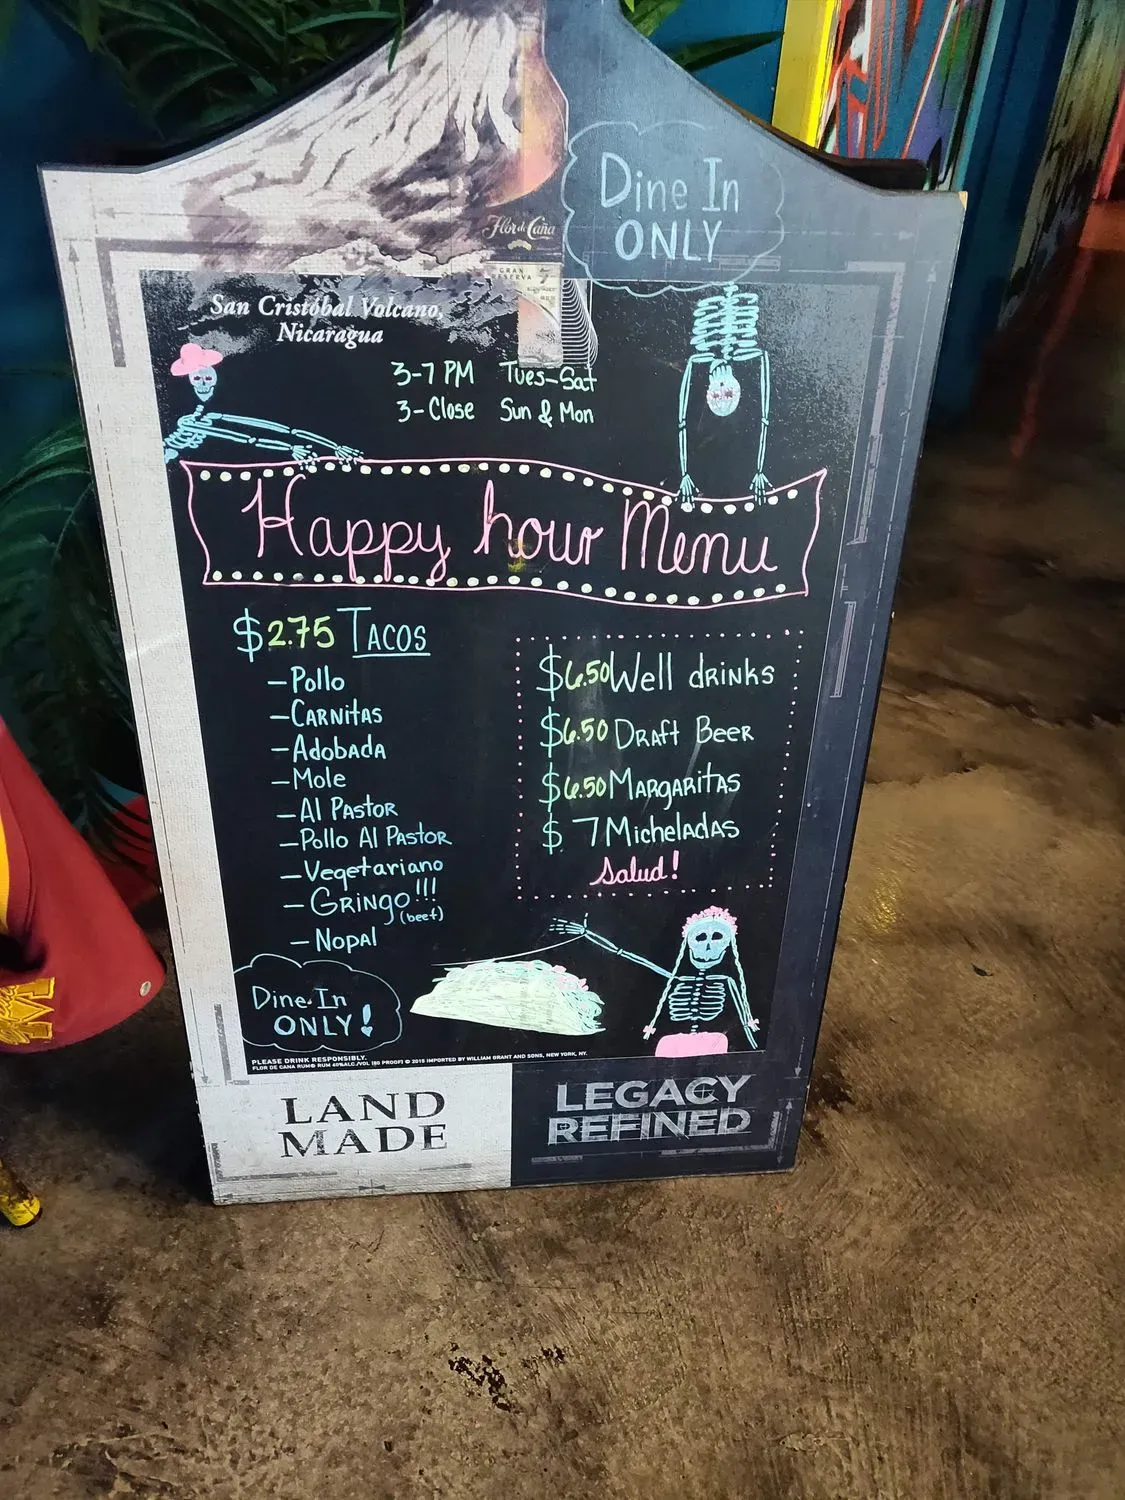 Dine In
ONLY
Flor de Caña
GRAN
RESERVA
7
San Cristóbal Volcano,
Nicaragua
3-7 PM Tues-Sat
3-Close Sun & Mon
Happy hour Menu
$2.75 TACOS
-Pollo
-CARNITAS
-Adobada
-Mole
-Al PASTOR
-Pollo Al PASTOR
-Vegetariano
-GRINGO!!!
(beef)
-Nopal
$6.50 Well dRINKS
$6.50 DRAft BEER
$6.50 MARgARITAS
$ 7 MichelAdAS
Salud!
Dine In
ONLY!
PLEASE DRINK RESPONSIBLY.
FLOR DE CANA RUM® RUM 40%ALC./VOL (80 PROOF) © 2015 IMPORTED BY WILLIAM GRANT AND SONS, NEW YORK, NY.
LAND
MADE
LEGACY
REFINED
M